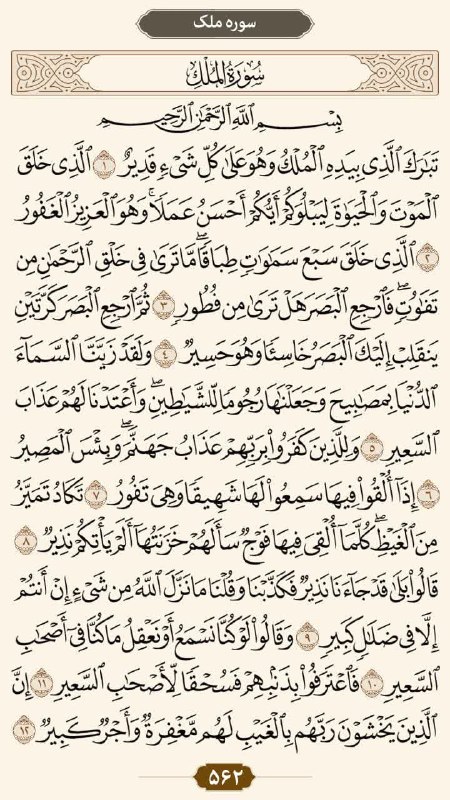 سوره ملک
سُورَةُ المُلْكِ
بِسْمِ ٱللَّهِ ٱلرَّحْمَٰنِ ٱلرَّحِيمِ
تَبَارَكَ ٱلَّذِى بِيَدِهِ ٱلْمُلْكُ وَهُوَ عَلَىٰ كُلِّ شَىْءٍ قَدِيرٌ ١ ٱلَّذِى خَلَقَ
ٱلْمَوْتَ وَٱلْحَيَوٰةَ لِيَبْلُوَكُمْ أَيُّكُمْ أَحْسَنُ عَمَلًا ۚ وَهُوَ ٱلْعَزِيزُ ٱلْغَفُورُ
٢ ٱلَّذِى خَلَقَ سَبْعَ سَمَٰوَٰتٍ طِبَاقًا ۖ مَّا تَرَىٰ فِى خَلْقِ ٱلرَّحْمَٰنِ مِن
تَفَٰوُتٍ ۖ فَٱرْجِعِ ٱلْبَصَرَ هَلْ تَرَىٰ مِن فُطُورٍ ٣ ثُمَّ ٱرْجِعِ ٱلْبَصَرَ كَرَّتَيْنِ
يَنقَلِبْ إِلَيْكَ ٱلْبَصَرُ خَاسِئًا وَهُوَ حَسِيرٌ ٤ وَلَقَدْ زَيَّنَّا ٱلسَّمَآءَ
ٱلدُّنْيَا بِمَصَٰبِيحَ وَجَعَلْنَٰهَا رُجُومًا لِّلشَّيَٰطِينِ ۖ وَأَعْتَدْنَا لَهُمْ عَذَابَ
ٱلسَّعِيرِ ٥ وَلِلَّذِينَ كَفَرُوا۟ بِرَبِّهِمْ عَذَابُ جَهَنَّمَ ۖ وَبِئْسَ ٱلْمَصِيرُ
٦ إِذَآ أُلْقُوا۟ فِيهَا سَمِعُوا۟ لَهَا شَهِيقًا وَهِىَ تَفُورُ ٧ تَكَادُ تَمَيَّزُ
مِنَ ٱلْغَيْظِ ۖ كُلَّمَآ أُلْقِىَ فِيهَا فَوْجٌ سَأَلَهُمْ خَزَنَتُهَآ أَلَمْ يَأْتِكُمْ نَذِيرٌ ٨
قَالُوا۟ بَلَىٰ قَدْ جَآءَنَا نَذِيرٌ فَكَذَّبْنَا وَقُلْنَا مَا نَزَّلَ ٱللَّهُ مِن شَىْءٍ إِنْ أَنتُمْ
إِلَّا فِى ضَلَٰلٍ كَبِيرٍ ٩ وَقَالُوا۟ لَوْ كُنَّا نَسْمَعُ أَوْ نَعْقِلُ مَا كُنَّا فِىٓ أَصْحَٰبِ
ٱلسَّعِيرِ ١٠ فَٱعْتَرَفُوا۟ بِذَنۢبِهِمْ فَسُحْقًا لِّأَصْحَٰبِ ٱلسَّعِيرِ ١١ إِنَّ
ٱلَّذِينَ يَخْشَوْنَ رَبَّهُم بِٱلْغَيْبِ لَهُم مَّغْفِرَةٌ وَأَجْرٌ كَبِيرٌ ١٢
۵۶۲